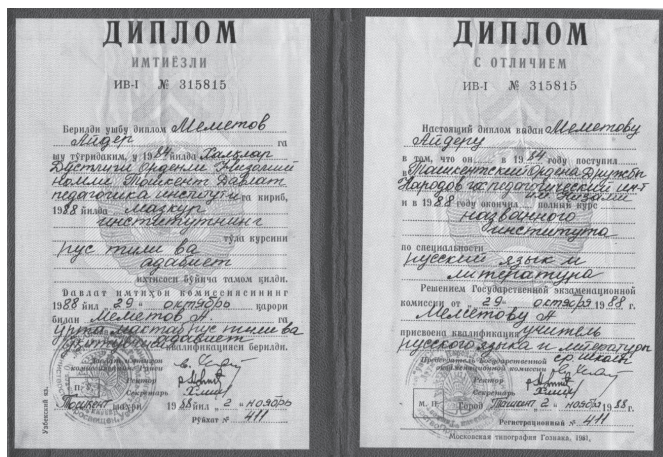 ДИПЛОМ
ИМТИЁЗЛИ
ИВ-I № 315815
Берилди ушбу диплом Меметов
Айдер га
шу тўғридаким, у 1984 йилда Халқлар
Дўстлиги Орденли Низомий
номли Тошкент Давлат
педагогика институти га кириб,
1988 йилда мазкур
институтнинг
тўла курсини
рус тили ва
адабиет
ихтисоси бўйича тамом қилди.
Давлат имтиҳон комиссиясининг
1988 йил „29“ октябрь қарори
билан Меметов А. га
ўрта мактаб рус тили ва
адабиет
квалификацияси берилди.
Давлат имтиҳон
комиссиясининг Раиси
Ректор
Секретарь
Тошкент шаҳри 1988 йил „2“ ноябрь
Рўйхат № 411
Узбекский яз.
ДИПЛОМ
С ОТЛИЧИЕМ
ИВ-I № 315815
Настоящий диплом выдан Меметову
Айдеру
в том, что он в 1984 году поступил
в Ташкентский ордена Дружбы
Народов гос педагогический инт
им Низами
и в 1988 году окончил полный курс
названного
института
по специальности
русский язык и
литература
Решением Государственной экзаменационной
комиссии от „29“ октября 1988 г.
Меметову А
присвоена квалификация учитель
русского языка и литературы
ср школы
Председатель Государственной
экзаменационной комиссии
Ректор
Секретарь
М. П.
Город Ташкент „2“ ноября 1988 г.
Регистрационный № 411
Московская типография Гознака, 1981.